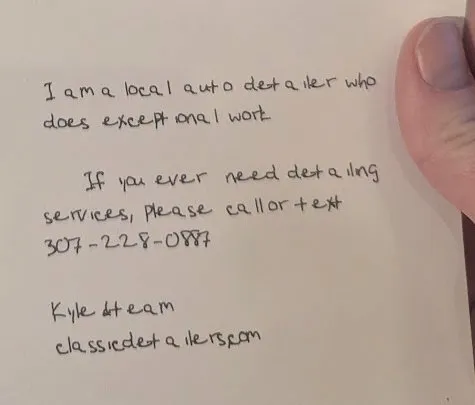 I am a local auto detailer who
does exceptional work
If you ever need detailing
services, please call or text
307-228-0887
Kyle & team
classicdetailers.com